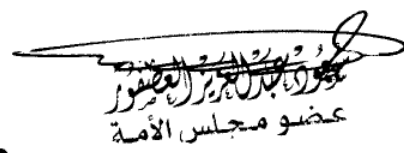 سعود عبدالعزيز العصفور
عضو مجلس الأمة